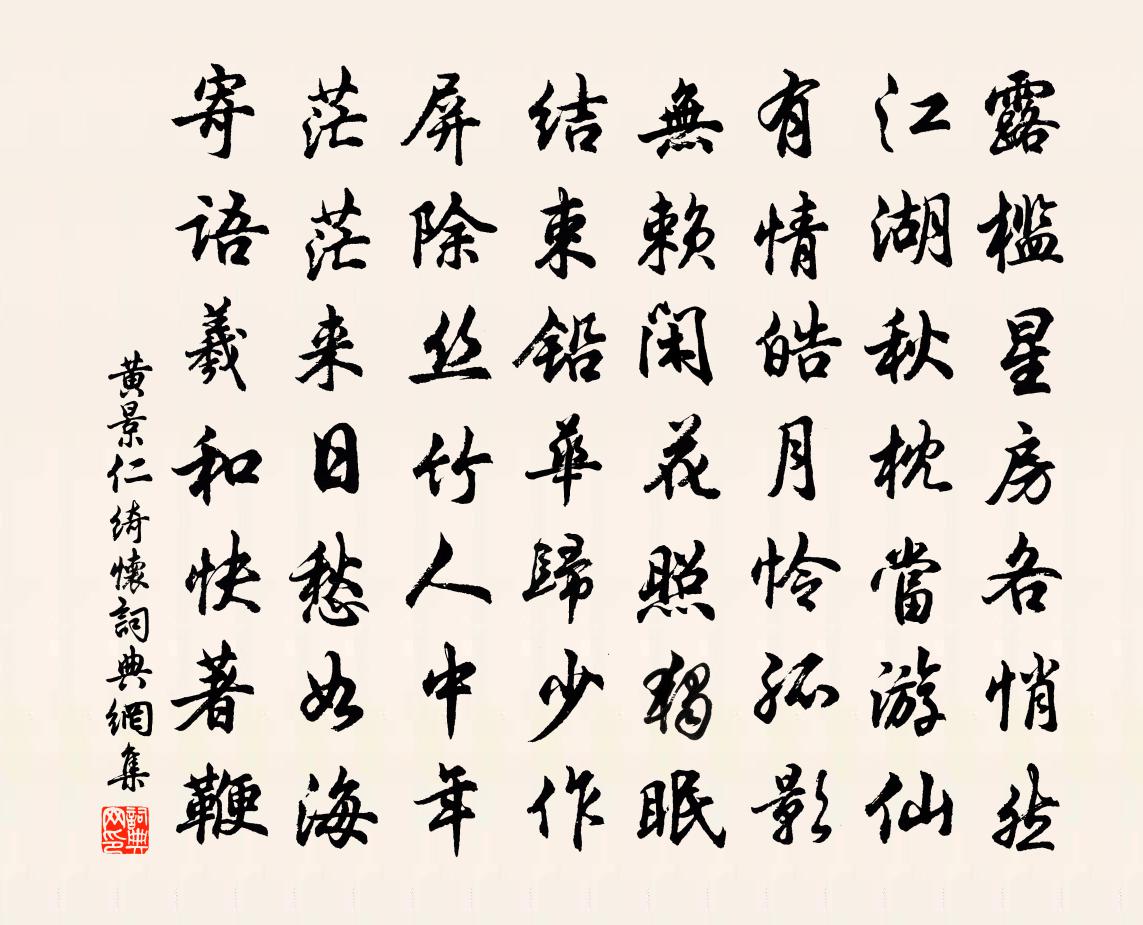 露槛星房各悄然
江湖秋枕當游仙
有情皓月怜孤影
無赖闲花照独眠
结束铅華歸少作
屏除丝竹人中年
茫茫来日愁如海
寄语羲和快著鞭
黄景仁绮懷詞典網集
詞典网印